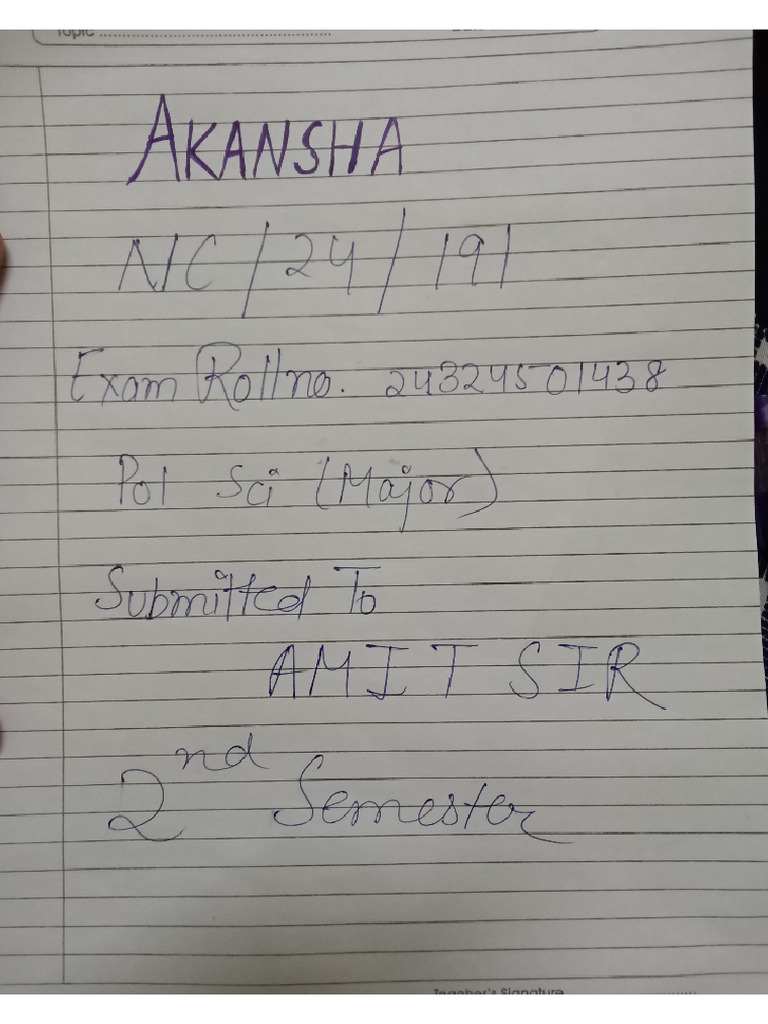 Topic ..........................................................
AKANSHA
NC/24/191
Exam Rollno. 24324501438
Pol Sci (Major)
Submitted To
AMIT SIR
2nd Semester
Teacher's Signature ..........